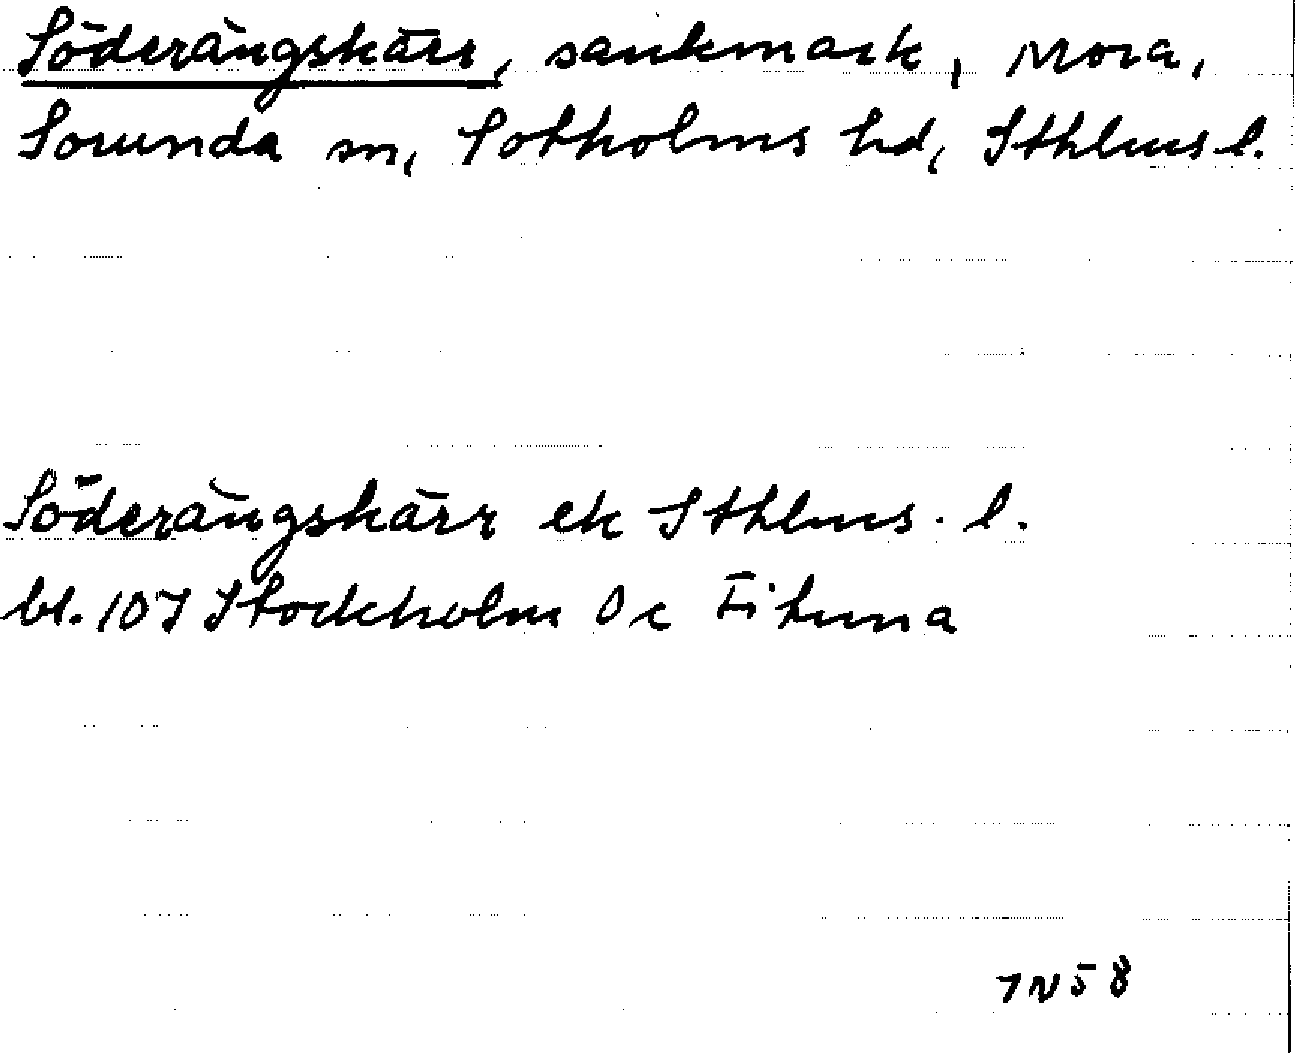 Söderängskärr, sankmark, Mora,
Sorunda sn, Sotholms hd, Sthlms l.
Söderängskärr ek Sthlms. l.
bl. 107 Stockholm Oc Fituna
7N58